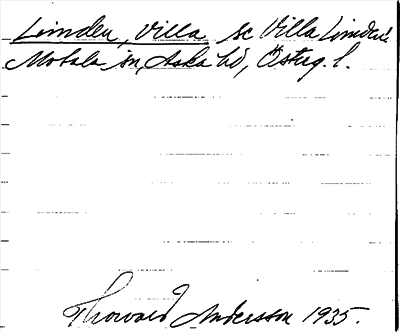 Linden, Villa se Villa Linden.
Motala sn, Aska hd, Östug. l.
Thorvard Andersson 1935.